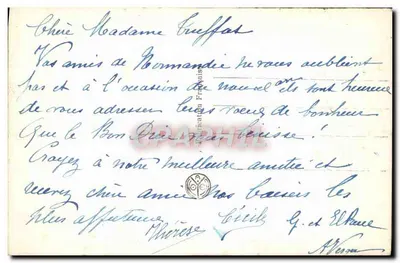 Chère Madame Truffat
Vos amis de Normandie ne vous oublient
pas et à l'occasion du nouvel an ils sont heureux
de vous adresser leurs voeux de bonheur
Que le Bon Dieu vous bénisse !
Croyez à notre meilleure amitié et
recevez chère amie nos baisers les
plus affectueux
Thérèse Cécile G. et